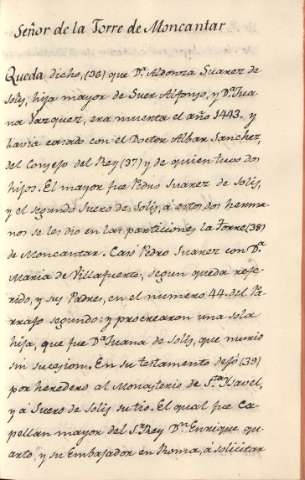 Señor de la Torre de Moncantar
Queda dicho, (36) que Dª Aldonza Suarez de
Solis, hija mayor de Suer Alfonso, y Dª Jua
na Vazquez, era muerta el año 1443. y
havia casado con el Doctor Albar Sanchez,
del Consejo del Rey (37) y de quien tuvo dos
hijos. El mayor fue Pedro Suarez de Solis,
y el segundo Suero de Solis, á estos dos herma
nos se les dio en las particiones la Torre (38)
de Moncantar. Casó Pedro Suarez con Dª
Maria de Villafuerte, segun queda refe
rido, y sus Padres, en el numero 44. del Pa
rrafo segundo: y procrearon una sola
hija, que fue Dª Juana de Solis, que murio
sin sucesion. En su testamento dejó (39)
por heredero al Monasterio de Stª Ysavel,
y á Suero de Solis su tio. El qual fue Ca
pellan mayor del Sr. Rey Dn. Enrique qu
arto, y su Embajador en Roma, á solicitar